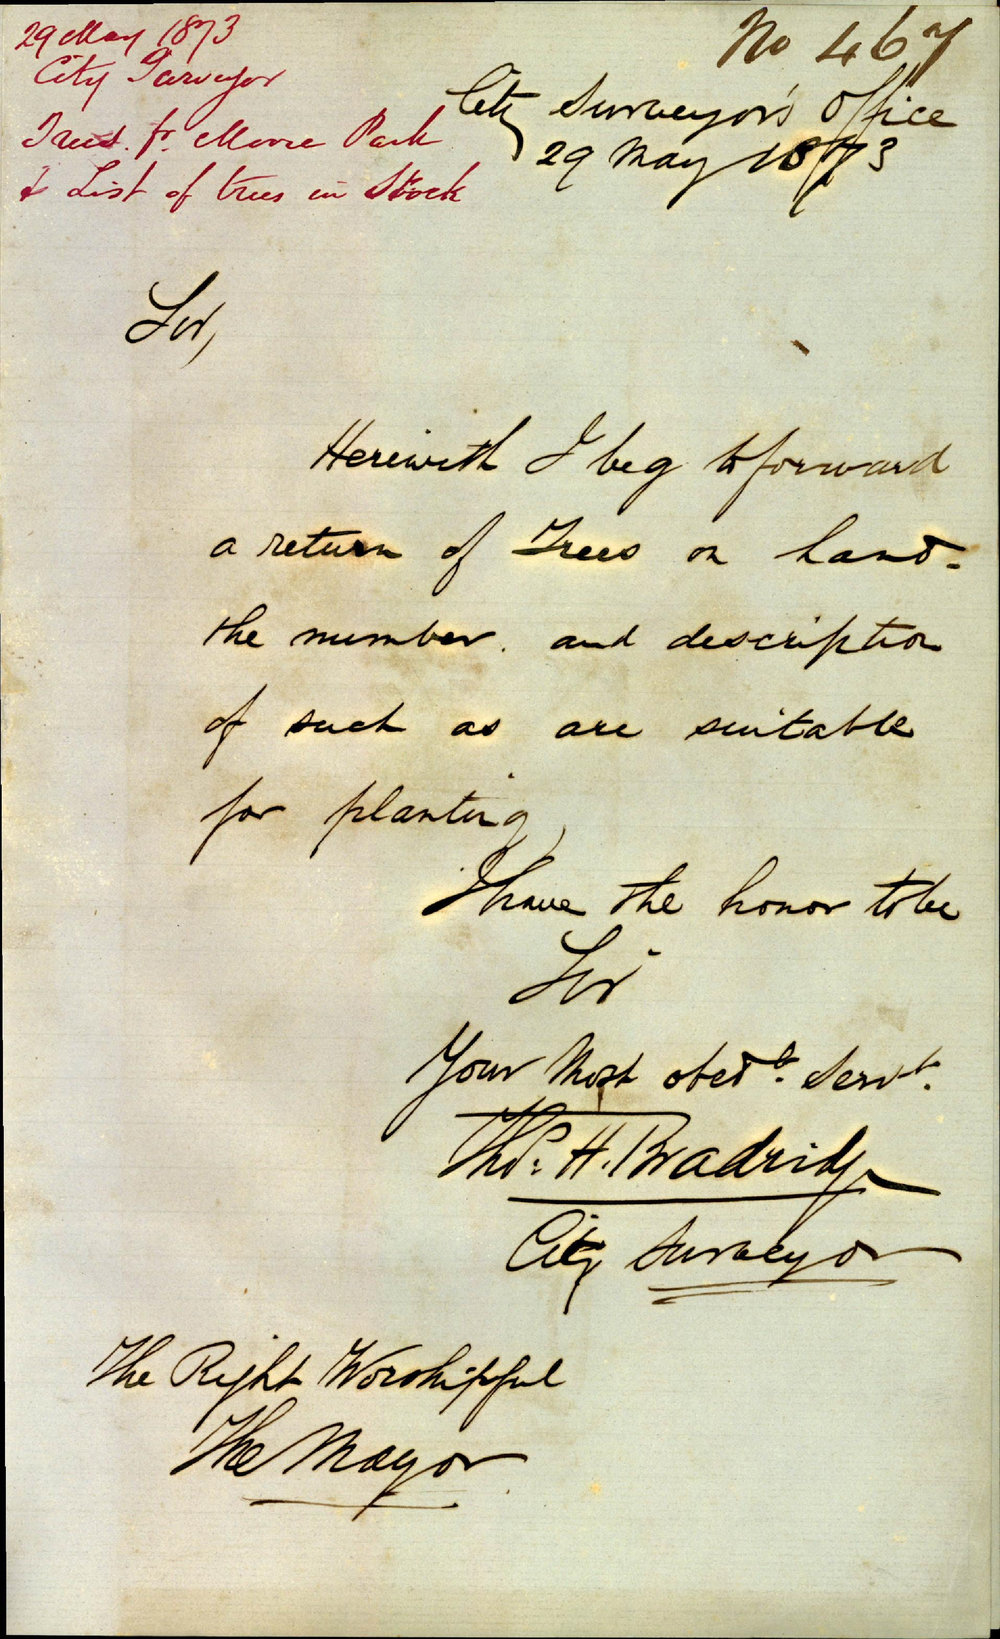 29 May 1873
City Surveyor
Trees fr. Moore Park
& List of trees in Stock
No 467
City Surveyor's Office
29 May 1873
Sir,
Herewith I beg to forward
a return of Trees on hand -
the number and description
of such as are suitable
for planting,
I have the honor to be
Sir
Your Most obedt. Servt.
Thos. H. Bradridge
City Surveyor
The Right Worshipful
The Mayor